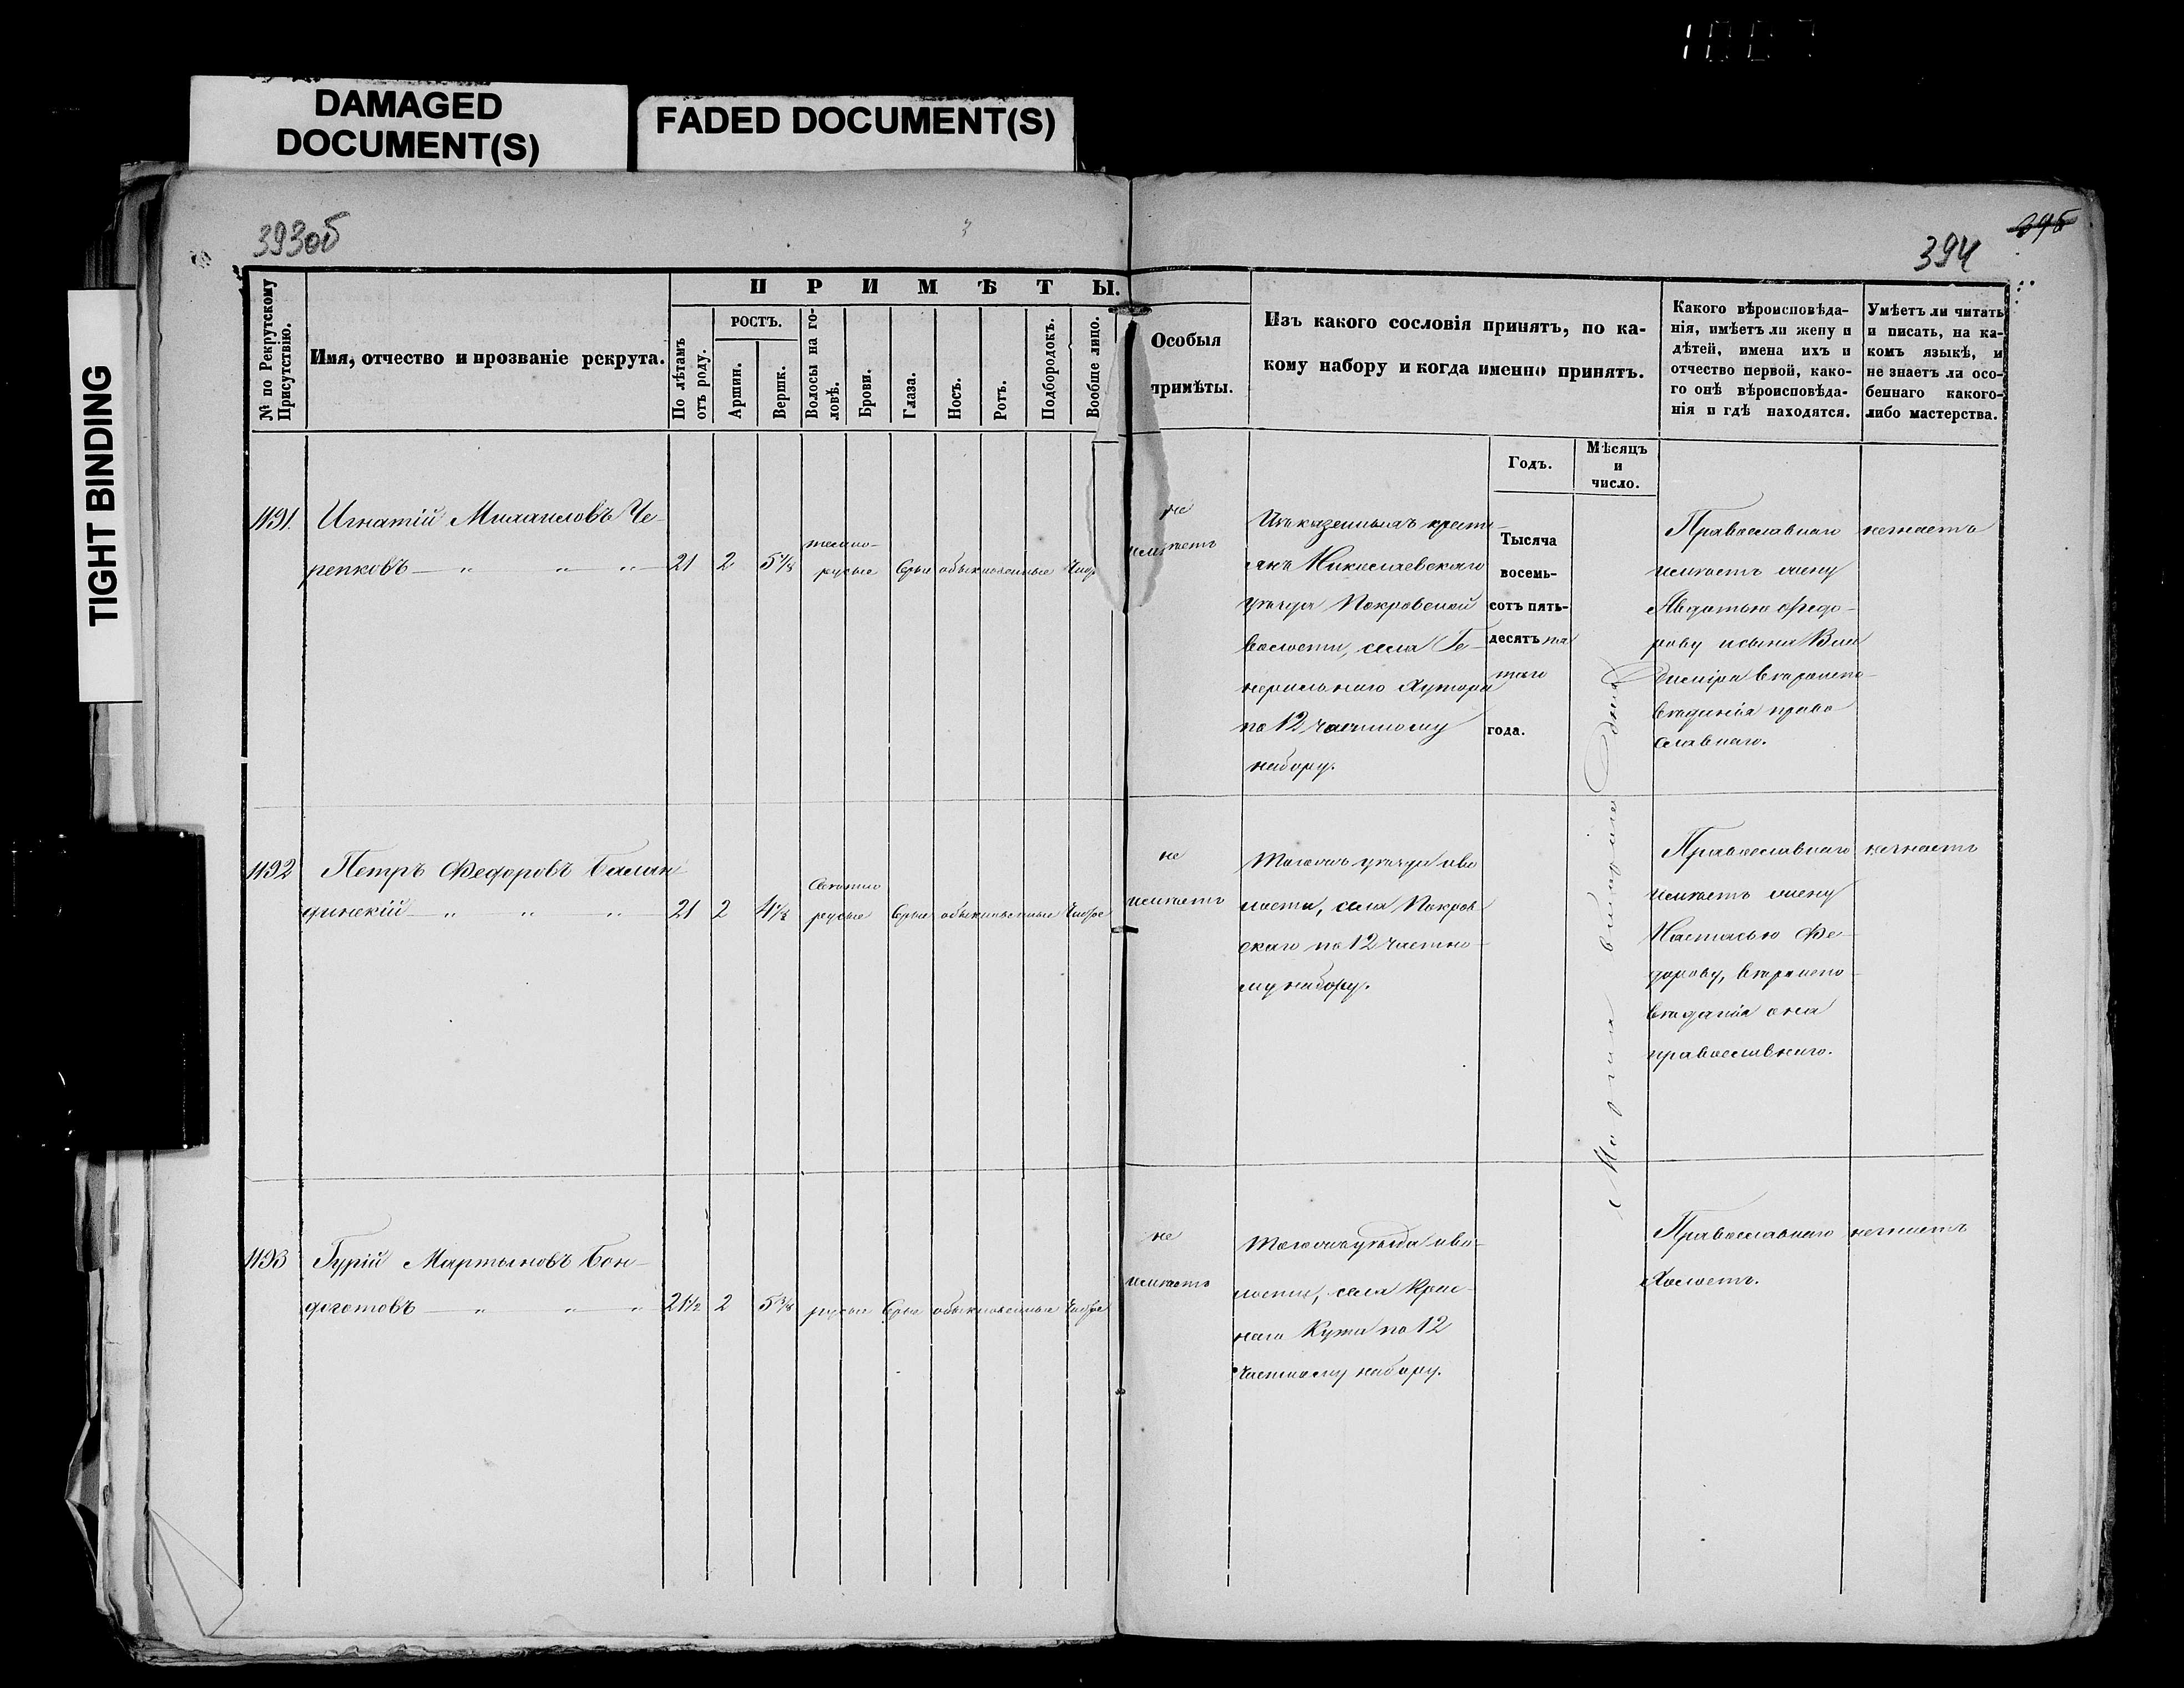 1007
DAMAGED
DOCUMENT(S)
FADED DOCUMENT(S)
TIGHT BINDING
393об
394
395
№ по Рекрутскому
Присутствію.
Имя, отчество и прозваніе рекрута.
ПРИМѢТЫ.
По лѣтамъ
отъ роду.
РОСТЪ.
Аршин.
Вершк.
Волосы на го-
ловѣ.
Брови.
Глаза.
Носъ.
Ротъ.
Подбородокъ.
Вообще лицо.
Особыя
примѣты.
Изъ какого сословія принятъ, по ка-
кому набору и когда именно принятъ.
Годъ.
Мѣсяцъ
и
число.
Какого вѣроисповѣда-
нія, имѣетъ ли жену и
дѣтей, имена ихъ и
отчество первой, како-
го онѣ вѣроисповѣда-
нія и гдѣ находятся.
Умѣетъ ли читать
и писать, на ка-
комъ языкѣ, и
не знаетъ ли осо-
беннаго какого-
либо мастерства.
1191.
Игнатій Михаиловъ Че-
репковъ — „ „ „
21
2
5 1/8
темно-
русые
Сѣрые
обыкновенные
Чисто
не
имѣетъ
Изъ казенныхъ кресть-
янъ Николаевскаго
уѣзда Покровской
волости, села Ге-
неральнаго Хутора
по 12 частному
набору.
Тысяча
восемь-
сотъ пять-
десятъ пя
таго
года.
Марта дня
Православнаго
имѣетъ жену
Авдотью Федо-
рову и сына Вла
диміра вѣроиспо-
вѣданія право
славнаго.
незнаетъ
1192
Петръ Федоровъ Балан
динскій — „ „ „
21
2
4 1/8
Свѣтло
русые
Сѣрые
обыкновенные
Чистое
не
имѣетъ
Тогожъ уѣзда и во
лости, села Покров
скаго по 12 частно-
му набору.
Православнаго
имѣетъ жену
Настасью Фе-
дорову, вѣроиспо-
вѣданія она
православнаго.
незнаетъ
1193
Гурій Мартыновъ Бон-
доготовъ — „ „ „
21 1/2
2
5 3/8
русые
Сѣрые
обыкновенные
Чистое
не
имѣетъ
Тогожъ уѣзда и во-
лости, села Крас-
наго Кута по 12
частному набору.
Православнаго
Холостъ.
незнаетъ